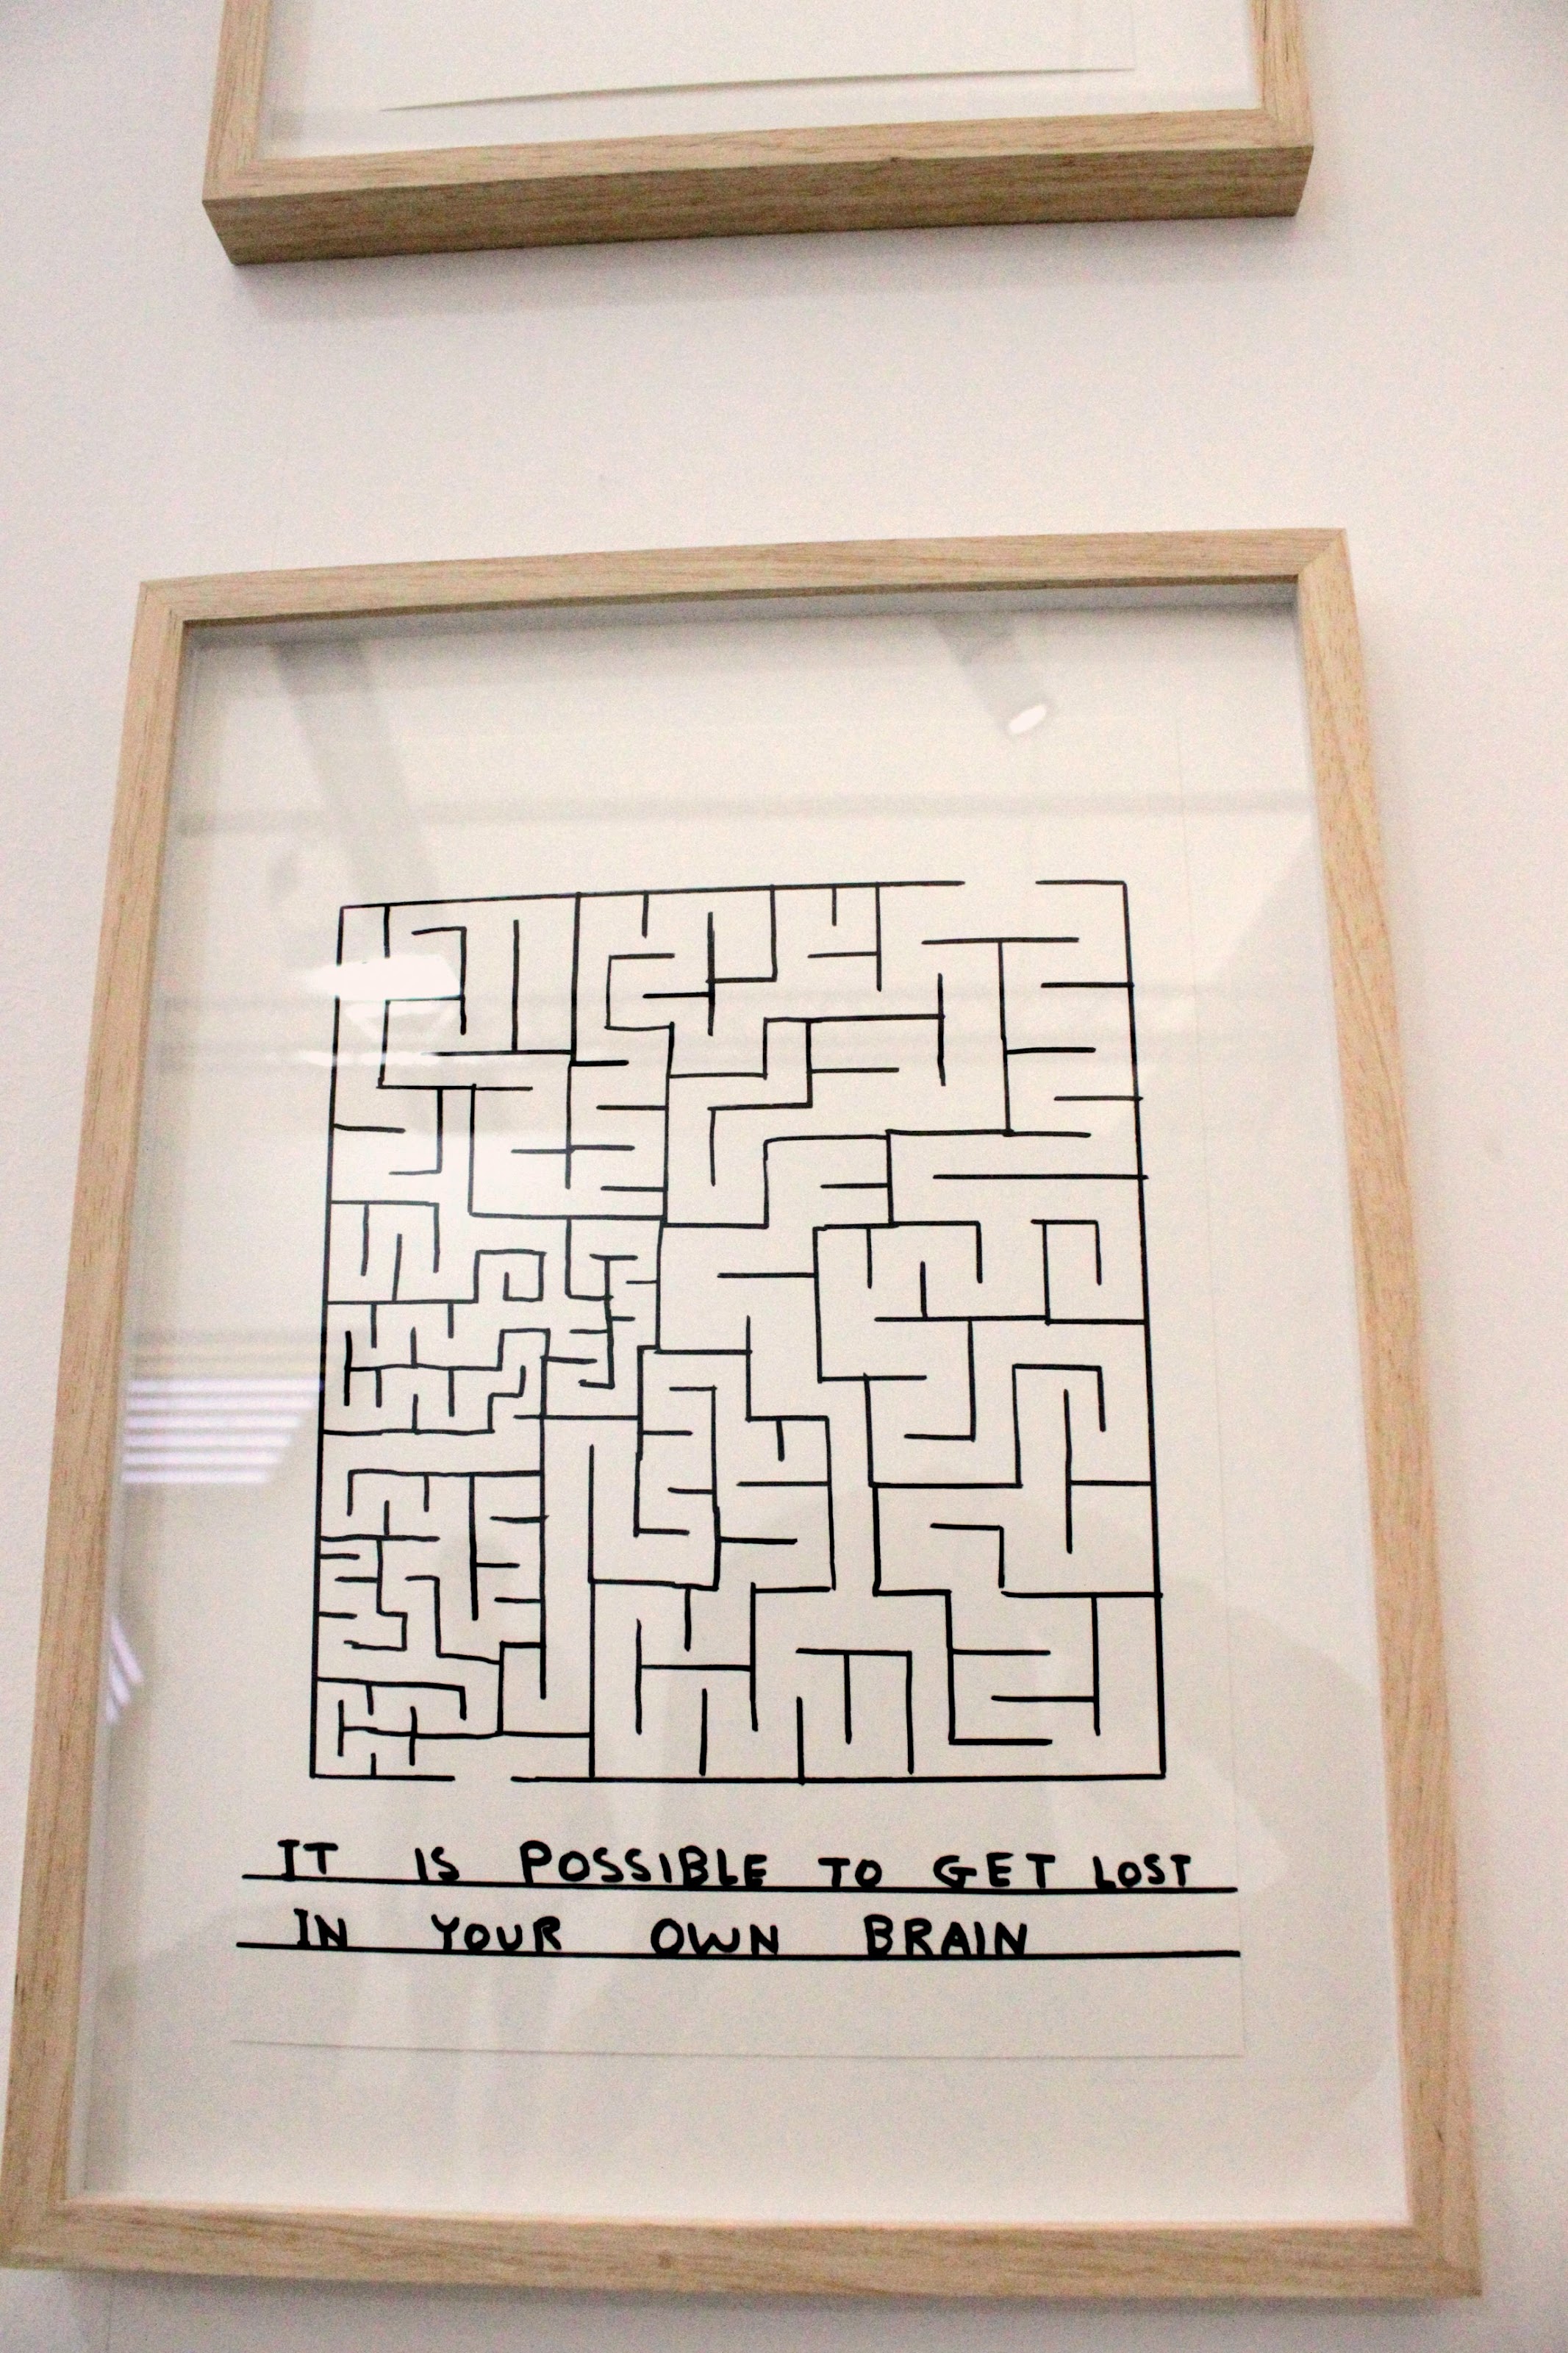 IT IS POSSIBLE TO GET LOST
IN YOUR OWN BRAIN